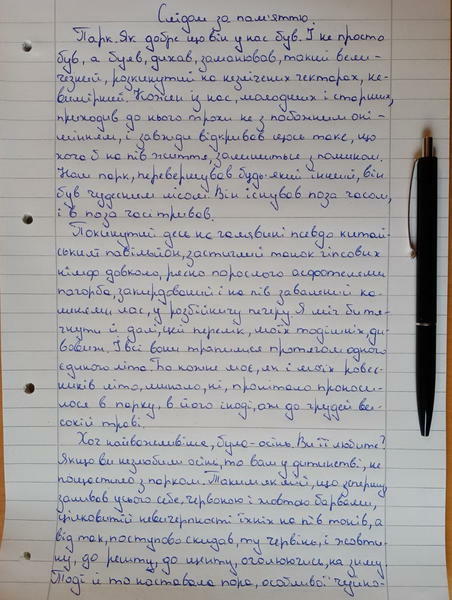 Слідом за пам'яттю.
Парк. Як добре що він у нас був. І не просто
був, а буяв, дихав, заманював, такий вели-
чезний, розкинутий на незлічених гектарах, не-
вимірний. Кожен із нас, молодших і старших,
приходив до нього трохи не з побожним оні-
мінням, і завжди відкривав щось таке, що
хоча б на пів життя, залишиться з помином.
Наш парк, перевершував будь-який инший, він
був чудесним лісом. Він існував поза часом,
і в поза часі тривав.
Покинутий десь на галявині псевдо китай-
ський павільйон, застиглий танок гіпсових
німф довкола, рясно порослого асфотелями
пагорба, закерований і на пів завалений ка-
мінням лаз, у розбійничу печеру. Я міг би тя-
гнути й далі, цей перелік, моїх тодішніх, ди-
вовиж. І всі вони трапилися протягом одного
єдиного літа. Бо кожне моє, як і моїх ровес-
ників літо, минало, ні, пролітало проноси-
лося в парку, в його іноді, аж до грудей ви-
сокій траві.
Хоч найважливіше, було - осінь. Ви її любите?
Якщо ви незлюбили осінь, то вам у дитинстві, не
пощастило з парком. Таким як мій, що спершу
заливав усього себе, червоною і жовтою барвами,
цілковитій невичерпності їхніх на пів тонів, а
від так, поступово скидав, ту червінь, і жовти-
ну, до решти, до щенту, оголюючись, на зиму.
Тоді й то наставала пора, особливої чуйно-